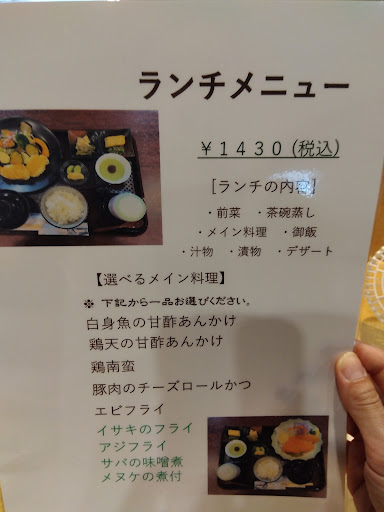 ランチメニュー
￥１４３０(税込)
[ランチの内容]
・前菜　・茶碗蒸し
・メイン料理　・御飯
・汁物　・漬物　・デザート
【選べるメイン料理】
※ 下記から一品お選びください。
白身魚の甘酢あんかけ
鶏天の甘酢あんかけ
鶏南蛮
豚肉のチーズロールかつ
エビフライ
イサキのフライ
アジフライ
サバの味噌煮
メヌケの煮付